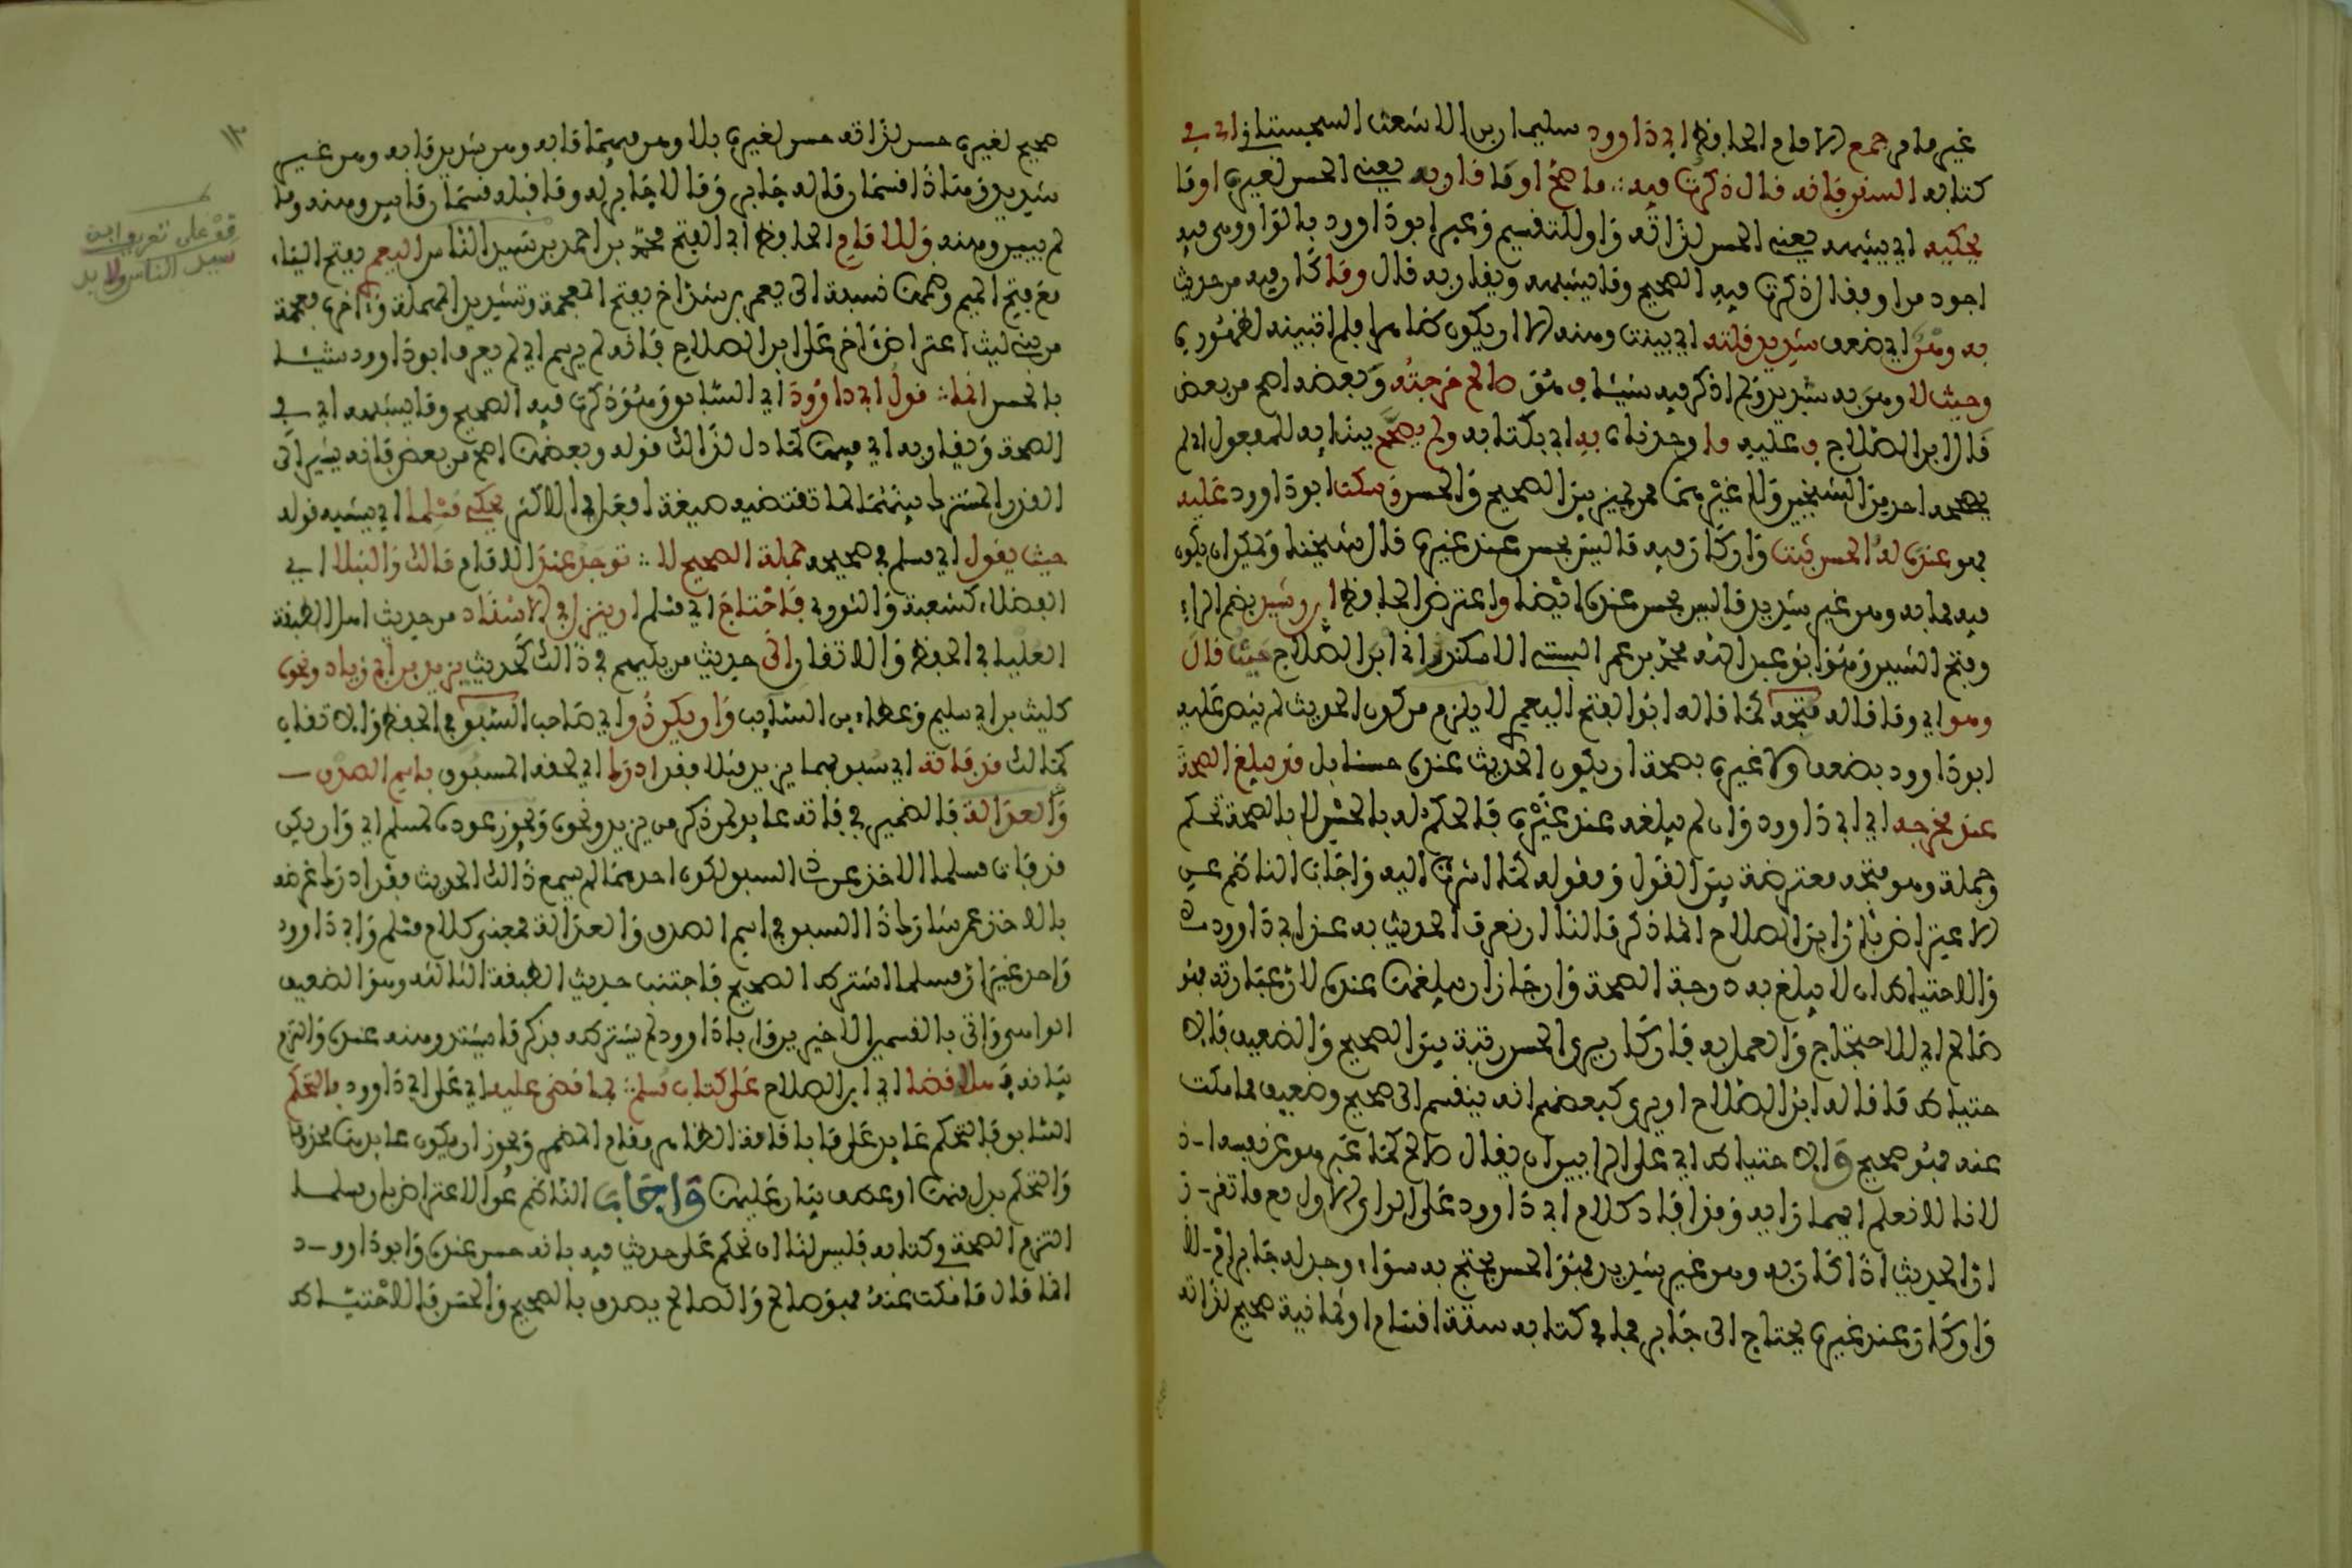 غير ما مر جمع الامام الحافظ ابي داوود سليمان بن الاشعث السجستاني اي في
كتابه السنن فانه قال ذكرت فيه ما صح او قارب يعني الحسن لغيره او ما
يحكيه اي يشبهه يعني الحسن لذاته واو للتقسيم وعبر ابو داوود بالواو وهي فيه
اجود من او فقال ذكرت فيه الصحيح وما يشبهه ويقاربه قال وما كان فيه من حديث
به وهن اي ضعف شديد قلته اي بينت وهنه الا ان يكون ظاهرا فلم ابينه لظهوره
وحيث لا وهن به شديد ولم اذكر فيه شيئا فهو صالح خرجته وبعضه اصح من بعض
قال ابن الصلاح فعليه ما وجدناه به اي بكتابه ولم يصحح ببنائه للمفعول اي لم
يصححه احد من الشيخين ولا غيرهما ممن يميز بين الصحيح والحسن وسكت ابو داوود عليه
فهو عنده له الحسن ثبت وان كان فيه ما ليس بحسن عند غيره قال شيخنا ويمكن ان يكون
فيه مما به وهن غير شديد ما ليس بحسن عنده ايضا واعترض الحافظ ابن رشيد بضم الراء
وفتح الشين وهو ابو عبد الله محمد بن عمر السبتي الاندلسي ابن الصلاح حيث قال
وهو اي وما قاله متجه كما قاله ابو الفتح اليعمري لا يلزم من كون الحديث لم ينص عليه
ابو داوود بضعف ولا غيره بصحة ان يكون الحديث عنده حسنا بل قد يبلغ الصحة
عند مخرجه اي ابي داوود وان لم يبلغه عند غيره فالحكم له بالحسن لا بالصحة تحكم
وجملة وهو متجه معترضة بين القول ومقوله كما اشرت اليه واجاب الناظم عن
الاعتراض بان ابن الصلاح انما ذكر ما لنا ان نعرف الحديث به عند ابي داوود
والاحتياط ان لا يبلغ به درجة الصحة وان جاز ان يبلغها عنده لان عبارته فهو
صالح اي للاحتجاج والعمل به فان كان يرى الحسن رتبة بين الصحيح والضعيف فالا
حتياط ما قاله ابن الصلاح او يرى كبعضهم انه ينقسم الى صحيح وضعيف فما سكت
عنه فهو صحيح والاحتياط اي على الرايين ان يقال صالح كما عبر هو عن نفسه
لانا لا نعلم ايهما رايه وقد افاد كلام ابي داوود على الراي الاول مع ما تقرر
ان الحديث اذا كان به وهن غير شديد فهو الحسن يحتج به سواء وجد له جابر ام لا
وان كان عند غيره يحتاج الى جابر فما في كتابه ستة اقسام او ثمانية صحيح لذاته
صحيح لغيره حسن لذاته حسن لغيره بلا وهن فيهما ما به وهن شديد ما به وهن غير
شديد وهذا قسمان ما له جابر وما لا جابر له وما قبله قسمان ما بين وهنه وما
لم يبين وهنه وللامام الحافظ ابي الفتح محمد بن احمد بن سيد الناس اليعمري بفتح الياء
مع فتح الميم وضمها نسبة الى يعمر بن شداخ بفتح المعجمة وتشديد المهملة واخره معجمة
من بني ليث اعتراض اخر على ابن الصلاح فانه لم يرسم اي لم يعرف ابو داوود شيئا
بالحسن انما قول ابي داوود اي السابق وهو ذكرت فيه الصحيح وما يشبهه اي في
الصحة ويقاربه اي فيها كما دل لذالك قوله وبعضها اصح من بعض فانه يشير الى
القدر المشترك بينهما لما تقتضيه صيغة افعل في الاكثر يحكي مسلما اي يشبه قوله
حيث يقول اي مسلم في صحيحه جملة الصحيح لا توجد عند الامام مالك والنبلا اي
الفضلاء كشعبة والثوري فاحتاج اي مسلم ان ينزل في الاسناد من حديث اهل الطبقة
العليا في الحفظ والاتقان الى حديث من يليهم في ذالك كحديث يزيد بن ابي زياد ونحوه
كليث بن ابي سليم وعطاء بن السائب وان يكن ذو اي صاحب السبق في الحفظ والاتقان
كمالك قد فاته اي سبق هما يزيد مثلا فقد ادرك اي لحقه المسبوق باسم الصدق
والعدالة فالضمير في فاته عائد لمن ذكر من يزيد ونحوه ويجوز عوده لمسلم اي وان يكن
قد فات مسلما الاخذ عن ذي السبق لكون احدهما لم يسمع ذالك الحديث فقد ادرك غرضه
بالاخذ عمن شارك ذا السبق في اسم الصدق والعدالة فمعنى كلام مسلم وابي داوود
واحد غير ان مسلما اشترط الصحيح فاجتنب حديث الطبقة الثالثة وهو الضعيف
الواهي واتى بالقسمين الاخيرين وابا داوود لم يشترطه فذكر ما يشتد وهنه عنده والتزم
بيانه فهلا قضا اي ابن الصلاح على كتاب مسلم بما قضى عليه اي على ابي داوود بالتحكم
السابق فالتحكم عائد على ما باقامة الظاهر مقام المضمر ويجوز ان يكون عائدها محذوفا
والتحكم بدل منها او عطف بيان عليها واجاب الناظم عن الاعتراض بان مسلما
التزم الصحة في كتابه فليس لنا ان نحكم على حديث فيه بانه حسن عنده وابو داوود
انما قال ما سكت عنه فهو صالح والصالح يصدق بالصحيح والحسن فالاحتياط
١٣
قف على تعريف ابن
سيد الناس ولا بد